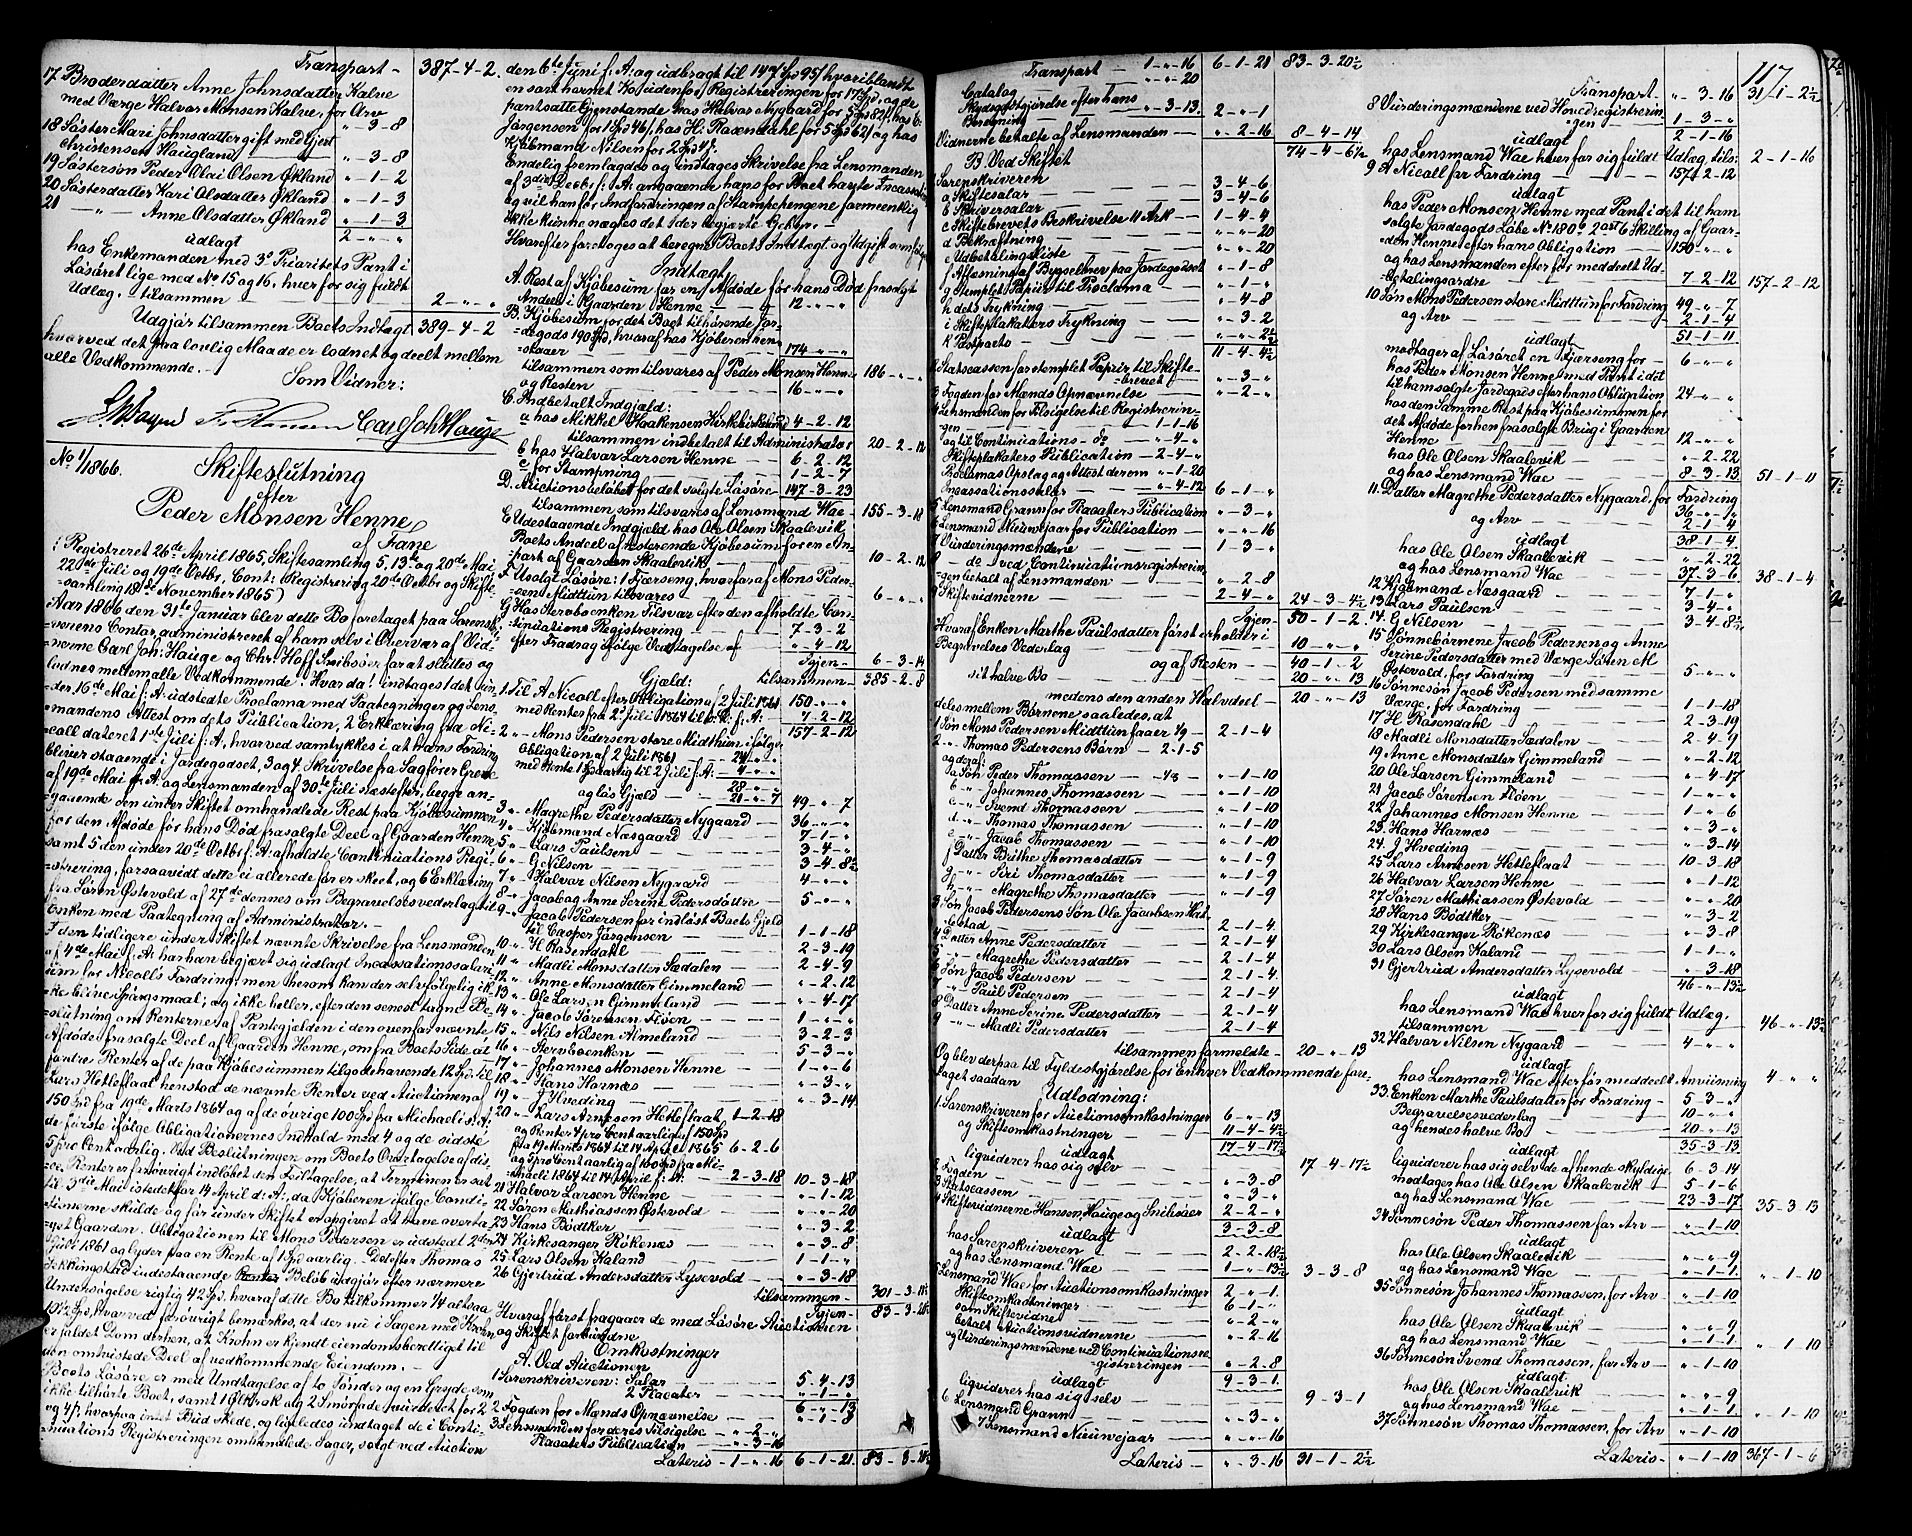 Transport - 387-4-2.
17 Broderdatter Anne Johnsdatter Kalve
med Værge Halvor Monsen Kalve, for
Arv " - 3 - 8
18 Søster Mari Johnsdatter gift med Gjert
Christensen Haugland - " - 3 - 8
19 Søstersøn Peder Olai Olsen Økland " - 1 - 2
20 Søsterdatter Kari Olsdatter Økland " - 1 - 3
21 " - Anne Olsdatter Økland " - 1 - 3
udlagt 2 - " - "
hos Enkemanden med 3die Prioritets Pant i
Løsøret lige med No 15 og 16, hver for sig fuldt
Udlæg. - tilsammen - 2 - " - "
Udgjør tilsammen Boets Indtægt 389-4-2
hvorved det paa lovlig Maade er lodnet og deelt mellem
alle Vedkommende. -
Som Vidner:
Carl Joh Hauge
No 1/1866.
Skifteslutning
efter
Peder Monsen Henne,
af Fane
(Registreret 26de April 1865, Skiftesamling 5, 13de og 20de Mai,
22de Juli og 19de Octbr, Cont: Registrering 20de Octbr og Skifte-
samling 18de November 1865)
Aar 1866 den 31te Januar blev dette Bo foretaget paa Sorenskri-
verens Contor, administreret af ham selv i Overvær af Vid-
nerne Carl Joh: Hauge og Chr: Hoff Snilsøer for at sluttes og
lodnes mellem alle Vedkommende. Hvorda! indtages 1 det un-
der 16de Mai f: A: udstedte Proclama med Paategninger og Lens-
mandens Attest om dets Publication, 2 Erklæring fra Ni-
coll dateret 1ste Juli f: A, hvorved samtykkes i at hans Fordring
bliver staaende i Jordegodset, 3 og 4 Skrivelse fra Sagfører Greve
af 19de Mai f: A: og Lensmanden af 30te Juli næstefter, begge an-
gaaende den under Skiftet omhandlede Rest paa Kjøbesummen
for den Afdøde før hans Død frasolgte Deel af Gaarden Henne
samt 5 den under 20de Octbr f: A: afholdte Continuations Regi-
strering, forsaavidt dette ei allerede før er skeet, og 6 Erklæring
fra Søren Østevold af 27de dennes om Begravelsesvederlag til
Enken med Paategning af Administrator. -
I den tidligere under Skiftet nævnte Skrivelse fra Lensmanden
af 4de Mai f: A: har han begjært sig udlagt Incassationssalari-
um for Nicolls Fordring; men herom kan der selvfølgelig ik-
ke blive Spørgsmaal; og ikke heller, efter den senest tagne Be-
slutning om Renterne af Pantegjælden i den ovenfor nævnte
Afdøde frasolgte Deel af Gaarden Henne, om fra Boets Side at
fordre Renter af de paa Kjøbesummen tilgodehavende 12 Spd. Til
Lars Hetleflaat henstod de nævnte Renter ved Auctionen af
150 Spd fra 19de Marts 1864 og af de øvrige 100 Spd fra Michaeli s: A:
de første ifølge Obligationernes Indhold med 4 og de sidste
5 pro Cent aarlig. Ved Beslutningen om Boets Overtagelse af dis-
se Renter er forøvrigt indløbet den Feiltagelse, at Terminen er sat
til 3die Mai istedetfor 14 April d: A:, da Kjøberen ifølge Condi-
tionerne skulde og før under Skiftet er opgivet at have overta-
get Gaarden. Obligationen til Mons Pedersen er udstedt 2den
Juli 1861 og lyder paa en Rente af 1 Spd aarlig. Det efter Thomas
Tekkingstad indestaaende Beløb udgjør efter nærmere
Undersøgelse rigtig 42 Spd, hvoraf dette Bo tilkommer 1/4 altsaa
10 1/2 Spd, hvorved forøvrigt bemærkes, at der nu i Sagen med Krohn
er faldet Dom derhen, at Krohn er kjendt eiendomsberettiget til
den omtvistede Deel af vedkommende Eiendom. -
Boets Løsøre er med Undtagelse af to Tønder og en Gryde, som
ikke tilhørte Boet, samt 1 Ølkrak og 2 Smørfade vurderet for 2
og 4 s, hvorpaa intet Bud skede, og ligeledes undtaget de i Conti-
nuations Registreringen omhandlede Sager, solgt ved Auction
den 6te Juni f: A: og udbragt til 147 Spd 95 s hvoriblandt
en som havnet Ko udenfor Registreringen for 17 Spd, og de
pantsatte Gjenstande hos Halvor Nygaard for 5 Spd 82 s, hos C.
Jørgensen for 1 Spd 46 s, hos H. Rosendahl for 5 Spd 62 s og hos
Kjøbmand Nilsen for 2 Spd 4 s.
Endelig fremlagdes og indtages Skrivelse fra Lensmanden
af 3die Decbr f: A: angaaende hans for Boet havte Incassation
og vil han for Indfordringen af Stampepengene formeentlig
ikke kunne nægtes det i der begjærte Gebyr. -
Hvorefter foretoges at beregne Boets Indtægt og Udgift som følger
Indtægt
A. Rest af Kjøbesum for en Afdøde før hans Død frasolgt
Andeel i Gaarden Henne - 12 - " - "
B. Kjøbesum for det Boet tilhørende Jor-
degods 190 Spd, hvoraf hos Kjøberen hen-
staaer - 174 - " - "
tilsammen som tilsvares af Peder Monsen Henne 186 - " - "
og Resten 16 - " - "
C. Indbetalt Indgjæld:
a hos Mikkel Haakensen Kirkebirkeland 4 - 2 - 12
tilsammen indbetalt til Administrator 20 - 2 - 12
b hos Halvor Larsen Henne 6 - 2 - 12
c for Stampning 1 - 2 - 7
D. Auctionsbeløbet for det solgte Løsøre 147 - 3 - 23
tilsammen som tilsvares af Lensmand Wae - 155 - 3 - 18
E Udestaaende Indgjæld hos Ole Olsen Skaalevik
Boets Andeel af resterende Kjøbesum for en An-
part af Gaarden Skaalevik - 10 - 2 - 12
F Usolgt Løsøre: 1 Fjærseng, hvorfor af Mons Peder-
sen Midttun tilsvares 6 - " - "
G Hos Stervboenken Tilsvar efter den afholdte Con-
tinuations Registrering - 7 - 3 - 2
efter Fradrag ifølge Vedtagelse af " - 4 - 12
Igjen - 6 - 3 - 14
tilsammen - 385 - 2 - 8
Gjæld:
1 Til A Nicoll efter Obligation af 2 Juli 1861 150 - " - "
med Renter fra 2. Juli 1864 til s: D. f: A: 7 - 2 - 12
157 - 2 - 12
2 " Mons Pedersen store Midthun ifølge
Obligation af 2 Juli 1861 - 24 - " - "
med Rente 1 Spd aarlig til 2 Juli f: A: 4 - " - "
28 - " - "
og løs Gjæld 21 - " - 7 49 - " - 7
3 " Magrethe Pedersdatter Nygaard - 36 - " - "
4 " Kjøbmand Næsgaard 7 - 1 - "
5 " Lars Paulsen 3 - 4 - "
6 " G. Nilsen 3 - 4 - 8 1/2
7 " Halvor Nilsen Nygaard 4 - " - "
8 " Jacob og Anne Serine Pedersdøttre 5 - " - "
9 " Jacob Pedersen for indløst Boets Gjæld
til Casper Jørgensen 1 - 1 - 18
10 " H. Rosendahl 2 - 3 - 19
11 " Madli Monsdatter Sædalen 2 - 4 - 9
12 " Anne Monsdatter Gimmeland " - 2 - 12
13 " Ole Larsen Gimmeland " - 4 - 17
14 " Jacob Sørensen Fløen 1 - " - "
15 " Nils Nilsen Almeland 3 - 2 - 3
16 " Stervboenken 5 - 3 - "
17 " Johannes Monsen Henne 1 - " - 6
18 " Hans Harnæs " - 3 - "
19 " J Hveding " - 3 - 14
20 " Lars Arnesen Hetleflaat 1 - 2 - 18
og Renter 4 pro Cent aarlig af 150 Spd
fra 19 Marts 1864 til 14 April 1865 6 - 2 - 6
og 5 pro Cent aarlig af 100 Spd fra Mi-
chaeli 1864 til 14 April f: A: 2 - 3 - 18 10 - 3 - 18
21 Halvor Larsen Henne " - 1 - 12
22 Søren Mathiassen Østevold " - " - 20
23 Hans Bødtker " - 3 - 2
24 Kirkesanger Røkenæs " - 3 - 8
25 Lars Olsen Kaland 1 - 1 - "
26 Gjertrud Andersdatter Lysevold " - 3 - 18
tilsammen - 301 - 3 - 11 1/2
Igjen - 83 - 3 - 20 1/2
Hvoraf først fragaaer de med Løsøre Auctionen
og Skiftet forbundne
Omkostninger
A. Ved Auctionen
1 Sorenskriveren: Salær 5 - 4 - 13
2 Placater " - 1 - "
6 - " - 13
2 Fogden for Mænds Opnævnelse " - 1 - 8
3 Lensmanden for deres Tilsigelse " - 2 - "
Placaters Publication " - 3 - 16
Lateris - 1 - " - 16 6 - 1 - 21 83 - 3 - 20 1/2
117
Transport 1 - " - 16 6 - 1 - 21 83 - 3 - 20 1/2
Catalog " - " - 20
Skydsgodtgjørelse efter hans
Beregning " - 3 - 13. 2 - " - 1
Vidnerne betalte af Lensmanden " - 2 - 16 8 - 4 - 14
74 - 4 - 6 1/2
B. Ved Skiftet
1 Sorenskriveren
a Skiftesalær 3 - 4 - 6
b Skriversalær 3 - 4 - 6
c Skiftebrevets Beskrivelse 11 Ark 1 - 4 - 4
d Bekræftning " - " - 20
e Udbetalingsliste " - " - 20
f Aflæsning af Bygselbrev paa Jordegodset " - 1 - 8
g Stemplet Papir til Proclama " - 1 - "
h dets Trykning " - 4 - 8
i Skifteplakaters Trykning " - 3 - 2
k Postporto " - " - 2 1/2
11 - 4 - 4 1/2
2 Statscassen for stemplet Papir til Skifte-
brevet " - 3 - "
3 Fogden for Mænds Opnævnelse " - 2 - "
4 Lensmanden for Tilsigelse til Registrerin-
gen 1 - 1 - 16
og til Continuations - do " - 4 - "
Skifteplakaters Publication 2 - 4 - "
Proclamas Opslag og Attest derom " - 1 - 20
Incassationssalær " - 4 - 12 6 - 1 - "
5 Lensmand Grann for Placaters Publication " - 3 - "
6 Lensmand Nieuwejaar for Publication " - " - 16
7 Vurderingsmændene 1 - 3 - "
8 " do ved Continuationsregistrerin-
gen betalt af Lensmanden " - 2 - 8
9 Skiftevidnerne 2 - 4 - " 24 - 3 - 4 1/2
Igjen - 50 - 1 - 2
Hvoraf Enken Marthe Paulsdatter først erholder i
Begravelses Vederlag 10 - " - "
og af Resten - 40 - 1 - 2
sit halve Bo 20 - " - 13
medens den anden Halvdeel 20 - " - 13
deles mellem Børnene saaledes, at
1 Søn Mons Pedersen Midttun faaer 1/9 2 - 1 - 4
2 " Thomas Pedersens Børn 2 - 1 - 5
og deraf:
a Søn Peder Thomassen " - 1 - 10
b " Johannes Thomassen " - 1 - 10
c " Svend Thomassen " - 1 - 10
d " Thomas Thomassen " - 1 - 10
e " Jacob Thomassen " - 1 - 10
f Datter Brithe Thomasdatter " - 1 - 9
g " Siri Thomasdatter " - 1 - 9
h " Magrethe Thomasdatter " - 1 - 9
3 Søn Jacob Pedersens Søn Ole Jacobsen Hat-
lestad 2 - 1 - 4
4 Datter Anne Pedersdatter 2 - 1 - 4
5 " Magrethe Pedersdatter 2 - 1 - 4
6 Søn Jacob Pedersen 2 - 1 - 4
7 " Paul Pedersen 2 - 1 - 4
8 Datter Anne Serine Pedersdatter 2 - 1 - 4
9 " Madli Pedersdatter 2 - 1 - 4
tilsammen formeldte - 20 - " - 13
Og blev derpaa til Fyldestgjørelse for Enhver Vedkommende fore-
taget saadan
Udlodning:
1 Sorenskriveren for Auctionsomkostninger 6 - " - 13
og Skifteomkostninger 11 - 4 - 4 1/2
udlagt 17 - 4 - 17 1/2
liqviderer hos sig selv 17 - 4 - 17 1/2
2 Fogden " - 3 - 8
3 Statscassen " - 3 - "
4 Skiftevidnerne Hansen, Hauge og Snilsøer 2 - 2 - "
udlagt 3 - 3 - 8
hos Sorenskriveren 2 - 2 - 18 1/2
og hos Lensmand Wae 1 - " - 13 1/2 3 - 3 - 8
5 Lensmand Wae for Auctionsomkostninger 2 - " - 1
Skifteomkostninger 6 - 1 - "
som Skiftevidne " - 2 - "
betalt Auctionsvidnerne " - 2 - 16
og Vurderingsmændene ved Continuationsre-
gistreringen " - 2 - 8
udlagt 9 - 3 - 1
liqviderer hos sig selv 9 - 3 - 1
6 Lensmand Grann " - 3 - "
7 Lensmand Nieuwejaar " - " - 16
Lateris - " - 3 - 16 31 - 1 - 2 1/2
Transport - " - 3 - 16 31 - 1 - 2 1/2
8 Vurderingsmændene ved Hovedregistrerin-
gen 1 - 3 - "
udlagt 2 - 1 - 16
hos Lensmand Wae hver for sig fuldt Udlæg, tils: 2 - 1 - 16
9 A Nicoll for Fordring 157 - 2 - 12
udlagt
hos Peder Monsen Henne med Pant i det til ham
solgte Jordegods Løbe No 180b 2 ort 6 Skilling af Gaar-
den Henne efter hans Obligation 150 - " - "
og hos Lensmanden efter før meddeelt Ud-
betalingsordre 7 - 2 - 12 157 - 2 - 12
10 Søn Mons Pedersen store Midttun for Fordring 49 - " - 7
og Arv 2 - 1 - 4
udlagt 51 - 1 - 11
modtager af Løsøret en Fjærseng for 6 - " - "
hos Peder Monsen Henne med Pant i det
til ham solgte Jordegods efter hans Obligation 24 - " - "
hos den Samme Rest paa Kjøbesummen for
det Afdøde forhen frasolgte Brug i Gaarden
Henne 12 - " - "
hos Ole Olsen Skaalevik " - 2 - 22
og hos Lensmand Wae 8 - 3 - 13 51 - 1 - 11
11 Datter Magrethe Pedersdatter Nygaard, for Fordring
36 - " - "
og Arv 2 - 1 - 4
udlagt 38 - 1 - 4
hos Ole Olsen Skaalevik " - 2 - 22
og hos Lensmand Wae 37 - 3 - 6 38 - 1 - 4
12 Kjøbmand Næsgaard 7 - 1 - "
13 Lars Paulsen 3 - 4 - "
14 G Nilsen 3 - 4 - 8 1/2
15 Sønnebørnene Jacob Pedersen og Anne
Serine Pedersdatter med Værge Søren M
Østevold, for Fordring 5 - " - "
16 Sønnesøn Jacob Pedersen med samme
Værge, for Fordring 1 - 1 - 18
17 H. Rosendahl 2 - 3 - 19
18 Madli Monsdatter Sædalen 2 - 4 - 9
19 Anne Monsdatter Gimmeland " - 2 - 12
20 Ole Larsen Gimmeland " - 4 - 17
21 Jacob Sørensen Fløen 1 - " - "
22 Johannes Monsen Henne 1 - " - 6
23 Hans Harnæs " - 3 - "
24 J Hveding " - 3 - 14
25 Lars Arnesen Hetleflaat 10 - 3 - 18
26 Halvor Larsen Henne " - 1 - 12
27 Søren Mathiassen Østevold " - " - 20
28 Hans Bødtker " - 3 - 2
29 Kirkesanger Røkenæs " - 3 - 8
30 Lars Olsen Kaland 1 - 1 - "
31 Gjertrud Andersdatter Lysevold " - 3 - 18
udlagt 46 - " - 13 1/2
hos Lensmand Wae hver for sig fuldt Udlæg.
tilsammen 46 - " - 13 1/2
32 Halvor Nilsen Nygaard 4 - " - "
udlagt
hos Lensmand Wae efter før meddeelt Anviisning 4 - " - "
33 Enken Marthe Paulsdatter for Fordring 5 - 3 - "
Begravelsesvederlag 10 - " - "
og hendes halve Bo 20 - " - 13
udlagt 35 - 3 - 13
liqviderer hos sig selv de af hende skyldige 6 - 3 - 14
modtager hos Ole Olsen Skaalevik 5 - 1 - 6
og hos Lensmand Wae 23 - 3 - 17 35 - 3 - 13
34 Sønnesøn Peder Thomassen for Arv " - 1 - 10
udlagt
hos Ole Olsen Skaalevik " - " - 9
og hos Lensmand Wae " - 1 - 1. " - 1 - 10
35 Sønnesøn Johannes Thomassen, for Arv " - 1 - 10
udlagt
hos Ole Olsen Skaalevik " - " - 9
og hos Lensmand Wae " - 1 - 1. " - 1 - 10
36 Sønnesøn Svend Thomassen, for Arv " - 1 - 10
udlagt
hos Ole Olsen Skaalevik " - " - 9
og hos Lensmand Wae " - 1 - 1. " - 1 - 10
37 Sønnesøn Thomas Thomassen, for Arv " - 1 - 10
Lateris - " - 1 - 10 367 - 1 - 6